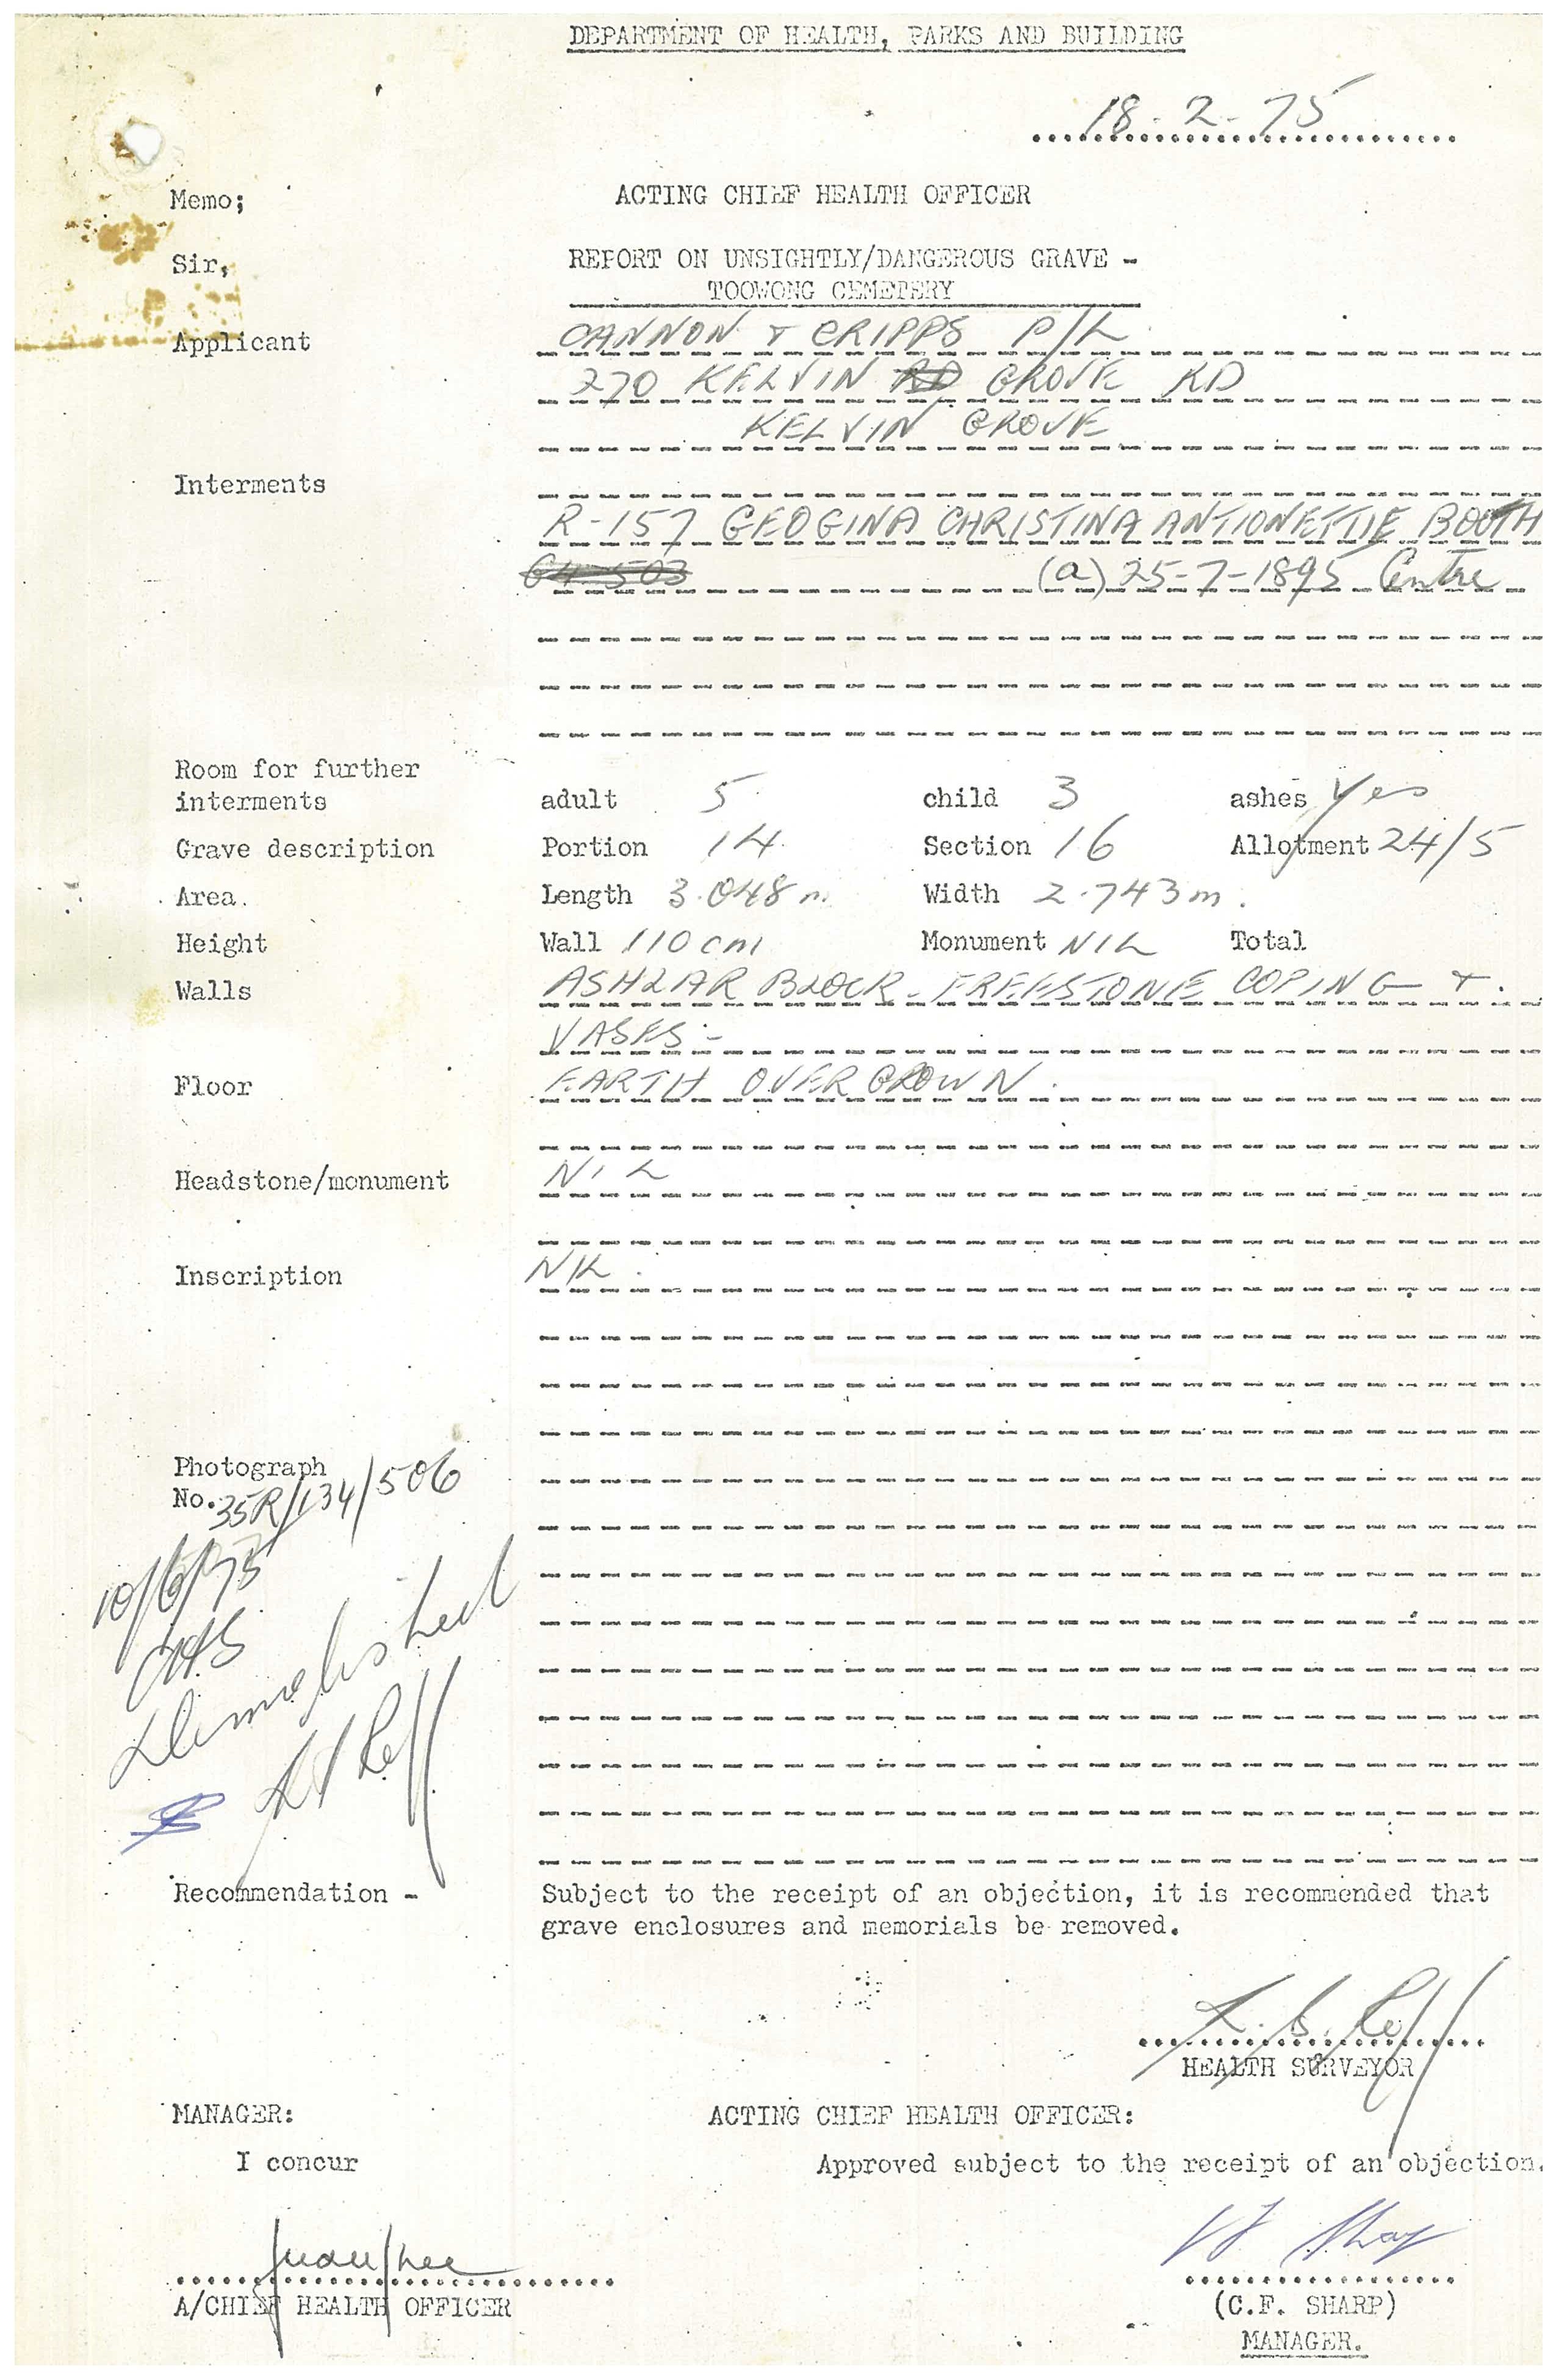 DEPARTMENT OF HEALTH, PARKS AND BUILDING
18-2-75
Memo; ACTING CHIEF HEALTH OFFICER
Sir, REPORT ON UNSIGHTLY/DANGEROUS GRAVE -
TOOWONG CEMETERY
Applicant CANNON & CRIPPS P/L
270 KELVIN RD GROVE RD
KELVIN GROVE
Interments
R-157 GEOGINA CHRISTINA ANTIONETTIE BOOTH
G4-503 (a) 25-7-1895 Centre
Room for further
interments adult 5 child 3 ashes Yes
Grave description Portion 14 Section 16 Allotment 24/5
Area. Length 3.048 m Width 2.743 m.
Height Wall 110 cm Monument NIL Total
Walls ASHLAR BLOCK - FREESTONE COPING &
VASES -
Floor EARTH OVERGROWN.
Headstone/monument NIL
Inscription NIL.
Photograph
No. 35R/134/506
10/6/75
CHS
Demolished
Recommendation - Subject to the receipt of an objection, it is recommended that
grave enclosures and memorials be removed.
HEALTH SURVEYOR
MANAGER: ACTING CHIEF HEALTH OFFICER:
I concur Approved subject to the receipt of an objection.
A/CHIEF HEALTH OFFICER (C.F. SHARP)
MANAGER.